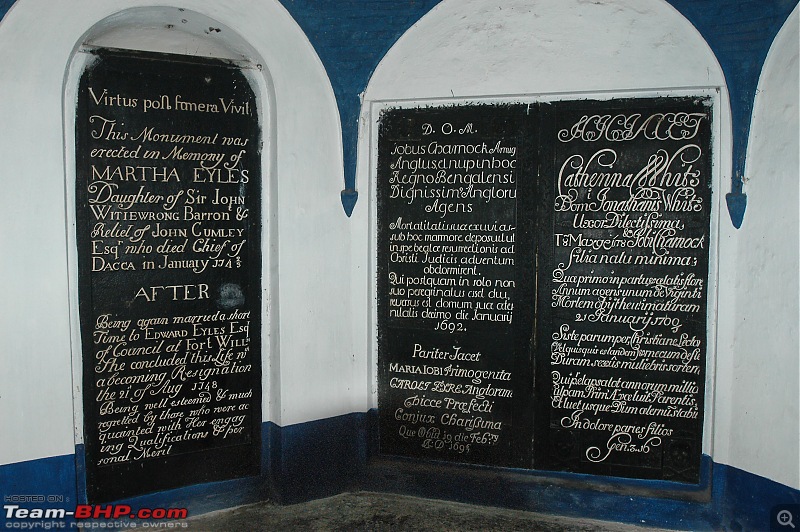 Virtus post funera Vivit
This Monument was
erected in Memory of
MARTHA EYLES
Daughter of Sir JOHN
WITTEWRONG Barron &
Relief of JOHN GUMLEY
Esqr who died Chief of
DACCA in January 174
AFTER
Being again married a short
Time to EDWARD EYLES Esqr
of Council at FORT WILLm
She concluded this Life wth
a becoming Resignation
the 21st of Aug 1748
Being well esteemed & much
regretted by those who were ac
quainted with Her engag
ing Qualifications & per
sonal Merit
D. O. M.
Jobus Charnock Armigr
Anglus et nup in hoc
Regno Bengalensi
Dignissimus Angloru
Agens
Mortalitatis suæ exuvias
sub hoc marmore deposuit ut
in spe beatæ resurrectionis ad
Christi Judicis adventum
obdormirent.
Qui postquam in solo non
suo peregrinatus esset diu,
reversus est domum suæ æter
nitatis decimo die Januarij
1692.
Pariter Jacet
MARIA IOBI Primogenita
CAROLI EYRE Anglorum
hicce Præfecti
Conjux Charissima
Que Obiit 19 die Febrij
A D 1696
HIC JACET
Catherina White
Domi Jonathanis White
Uxor Dilectissima
Tes Mægeeins Jobi Charnock
filia natu minima;
Qua primo in partu et ætatis flore
Annum agens unum de Viginti
Mortem obijt heu! immaturam
21 Januarij 1700
Siste parumper, Christiane, Lector
Vel quisquis es tandem et mecum defle
Duram sexus muliebris sortem
Qui per elapsa tot annorum millia
Culpam Primæ Evæ luit Parentis,
Et luet usque Dum æternum stabit
In dolore paries filios
Gen. 3. 16
Team-BHP.com
copyright respective owners
HOSTED ON